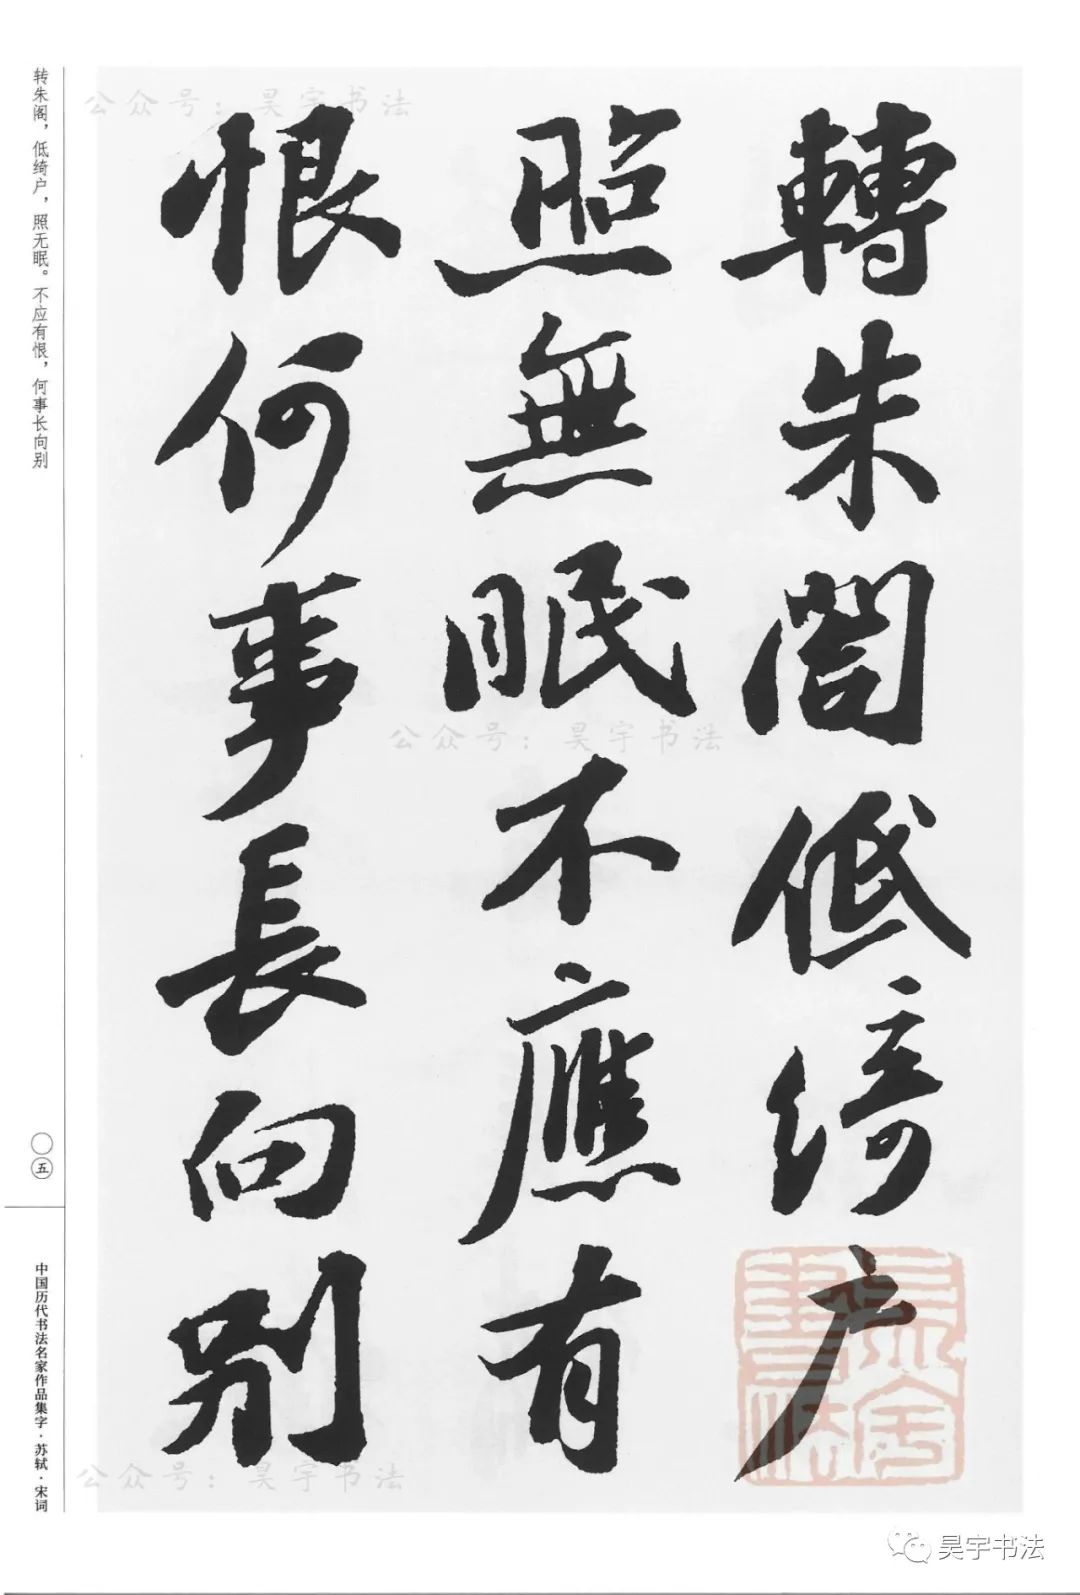 轉朱閣低綺户
照無眠不應有
恨何事長向别
转朱阁，低绮户，照无眠。不应有恨，何事长向别
〇五
中国历代书法名家作品集字·苏轼·宋词
公众号：昊宇书法
公众号：昊宇书法
公众号：昊宇书法
昊宇书法
昊宇书法